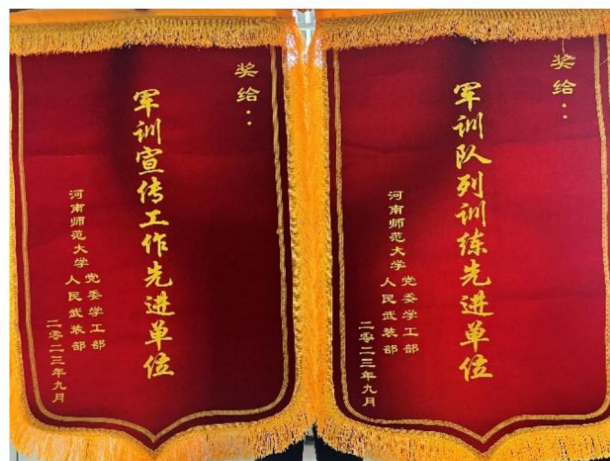 奖给：
军训宣传工作先进单位
河南师范大学
党委学工部
人民武装部
二零二三年九月
奖给：
军训队列训练先进单位
河南师范大学
党委学工部
人民武装部
二零二三年九月